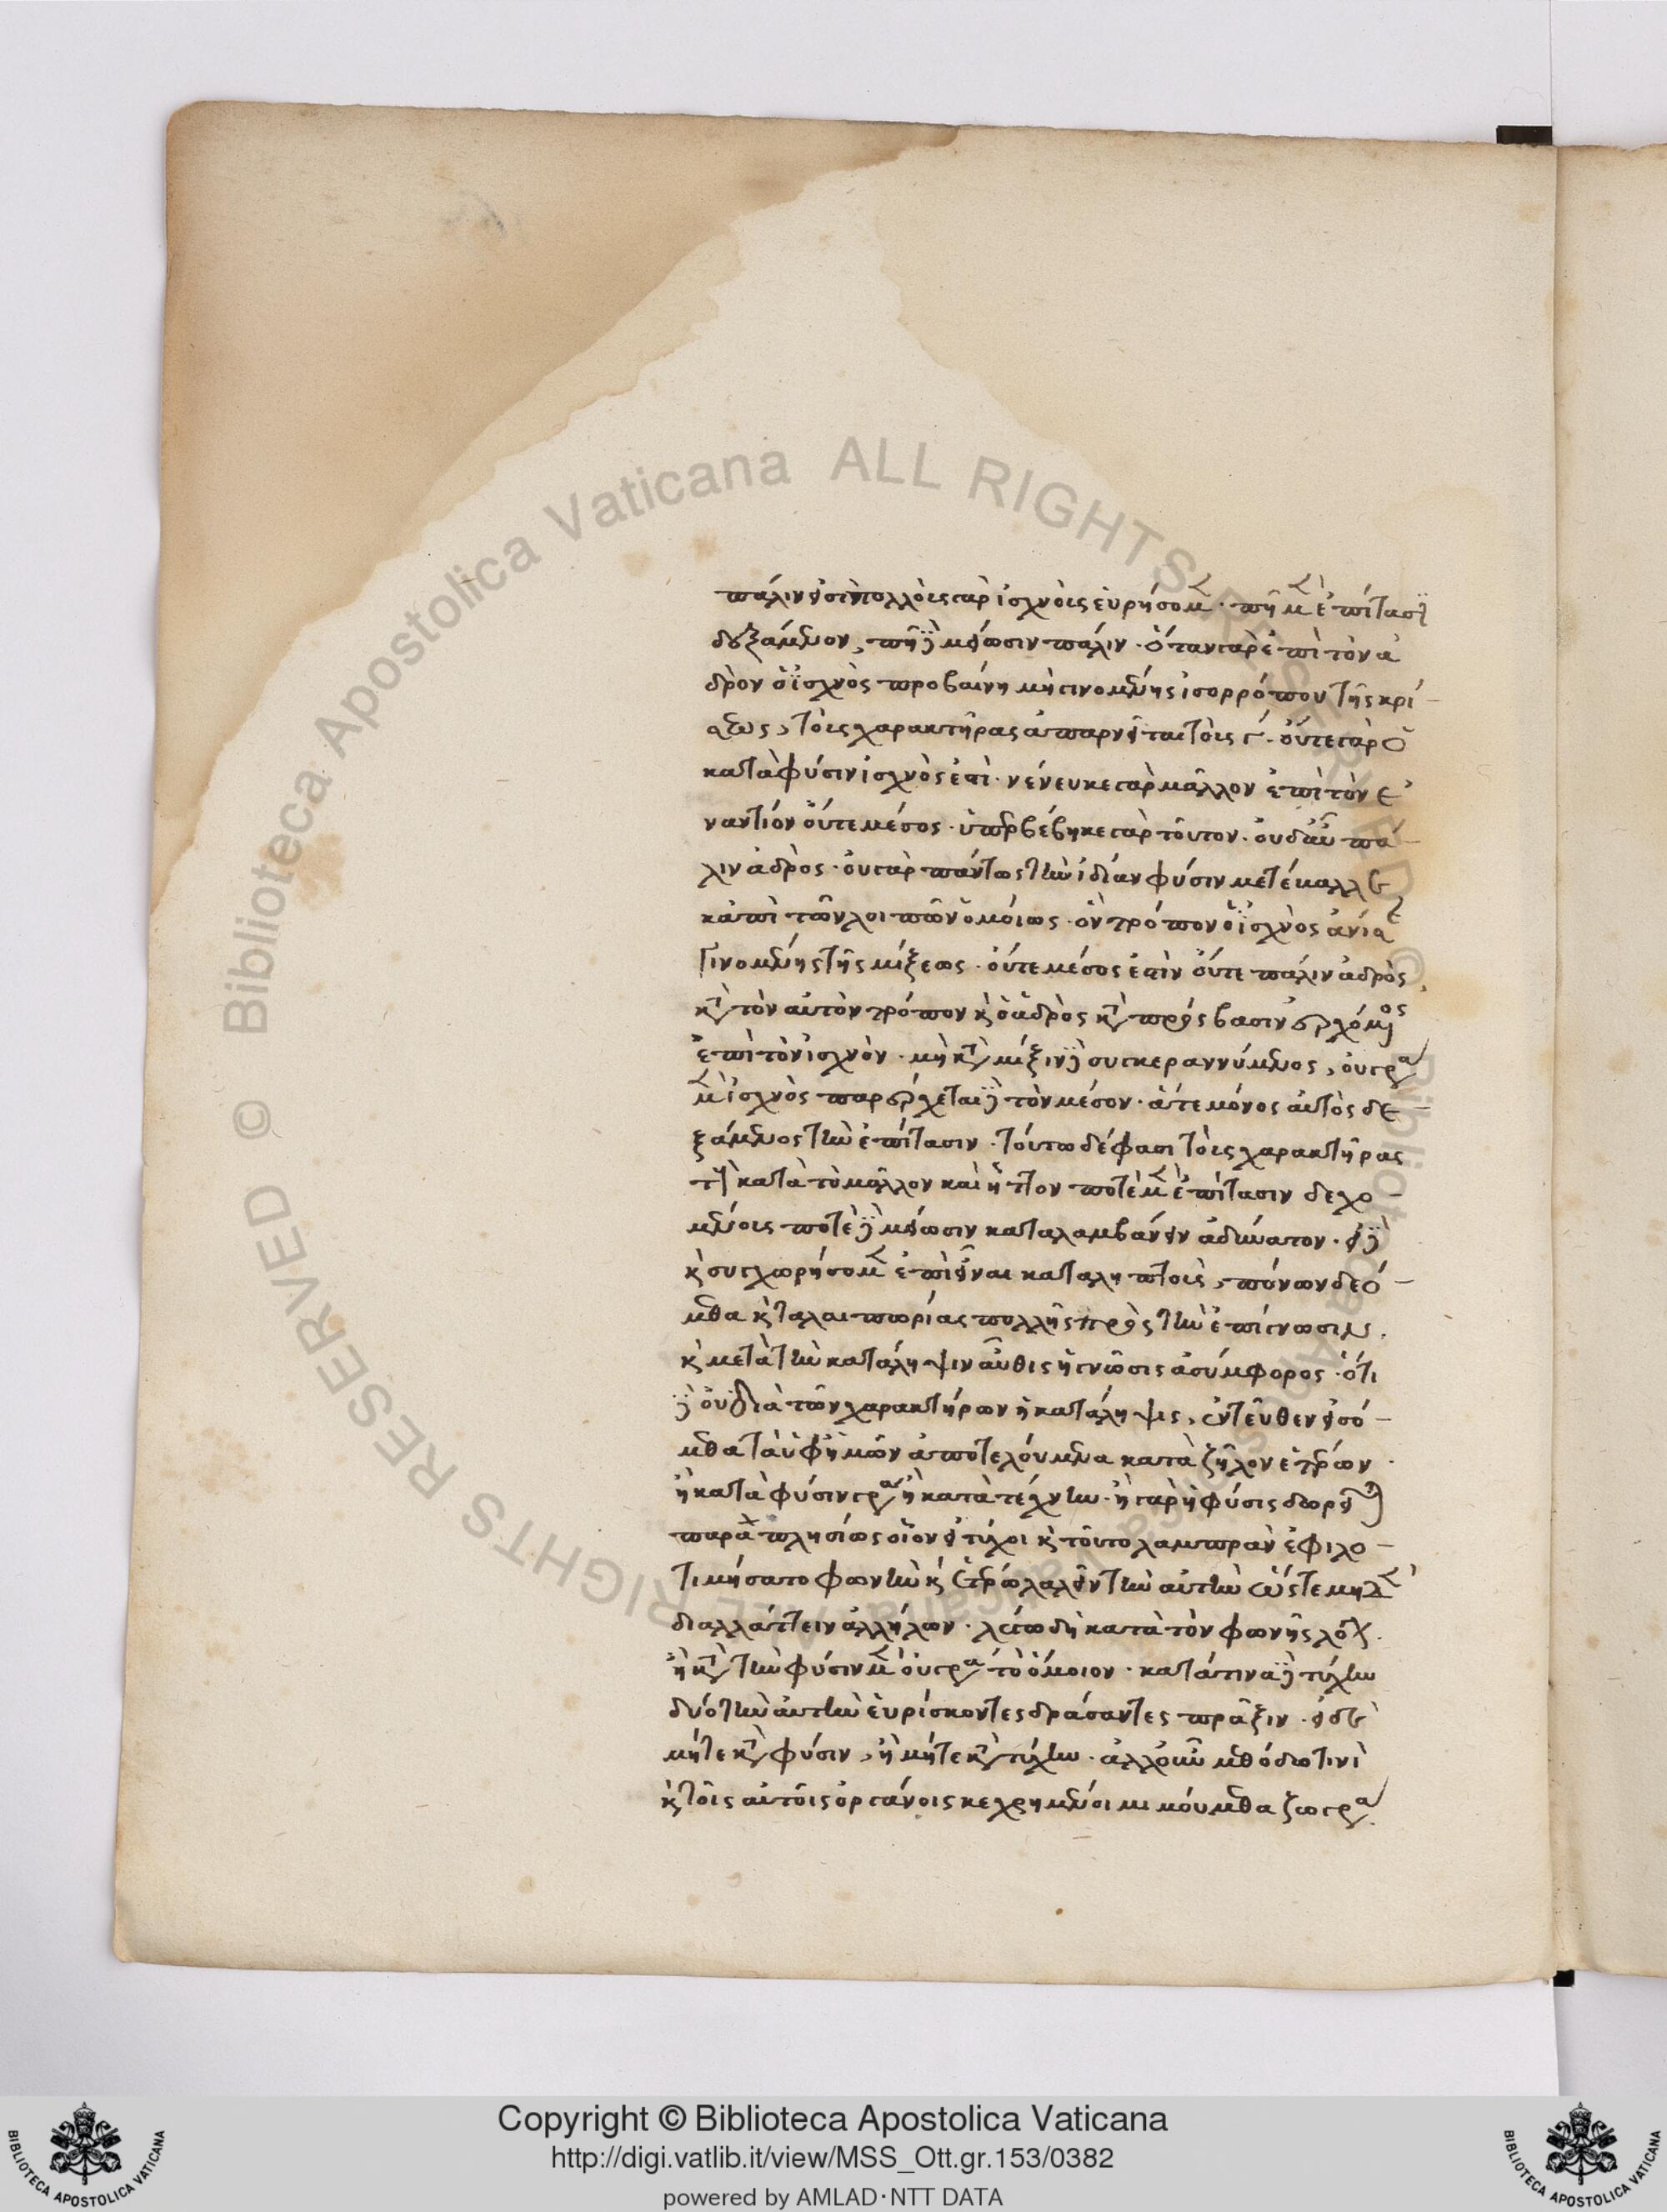 πάλιν εἰσὶ πολλοῖς γὰρ ἰσχνοῖς εὑρήσομ · πῆ μ ἐπίτασι
δεξάμενον, πῆ δὲ μείωσιν πάλιν · ὅταν γὰρ ἐπὶ τὸν ἁ
δρὸν ὁ ἰσχνὸς προβαίνη μὴ γινομένης ἰσορρόπου τῆς κρά
σεως, τοῖς χαρακτῆρας ἀπαρνεῖται τοῖς γ · οὔτε γὰρ ὁ
κατὰ φύσιν ἰσχνὸς ἐστὶ · νένευκε γὰρ μᾶλλον ἐπὶ τὸν ἐ
ναντίον οὔτε μέσος · ὑπερβέβηκε γὰρ τοῦτον · οὐδ αὖ πά
λιν ἁδρὸς · οὐ γὰρ πάντως τὴν ἰδίαν φύσιν μετέβαλλε
κἀπὶ τῶν λοιπῶν ὁμοίως · ὃν τρόπον ὁ ἰσχνὸς ἀνίσ
γινομένης τῆς μίξεως · οὔτε μέσος ἐστὶν οὔτε πάλιν ἁδρὸς,
κατὰ τὸν αὐτὸν τρόπον καὶ ὁ ἁδρὸς κατὰ πρόσβασιν ἐρχόμενος
ἐπὶ τὸν ἰσχνὸν · μὴ κατὰ μίξιν δὲ συγκεραννύμενος, οὑτρα
μ ἰσχνὸς παρέρχεται δὲ τὸν μέσον · ἅτε μόνος αὐτὸς δε
ξάμενος τὴν ἐπίτασιν · τούτω δέ φασι τοῖς χαρακτῆρας
τῆ κατὰ τὸ μᾶλλον καὶ ἧττον ποτὲ μ ἐπίτασιν δεχο
μένοις ποτὲ δὲ μείωσιν καταλαμβάνειν ἀδύνατον · εἰ δὲ
καὶ συγχωρήσομ ἐπιεῖναι καταληπτοὶς, πόνων δεό
μεθα καὶ ταλαιπωρίας πολλῆς πρὸς τὴν ἐπίγνωσιν.
καὶ μετὰ τὴν κατάληψιν αὖθις ἡ γνῶσις ἀσύμφορος · ὅτι
δὲ οὐ διὰ τῶν χαρακτήρων ἡ κατάληψις, ἐντεῦθεν εἰσό
μεθα τὰ ὑφ' ἡμῶν ἀποτελούμενα κατὰ ζῆλον ἑτέρων ·
ἢ κατὰ φύσιν γρα ἢ κατὰ τέχνην · ἢ γὰρ ἡ φύσις δωρεῖται
παραπλησίως οἷον εἰ τύχοι καὶ τοῦτο λαμπρὰν ἐφιλο
τιμήσατο φωνὴν καὶ ἑτέρω λαλεῖν τὴν αὐτὴν ὥστε μηδὲ
διαλλάττειν ἀλλήλων · λέγω δὴ κατὰ τὸν φωνῆς λόγον.
ἢ κατὰ τὴν φύσιν μ οὑτρα τὸ ὅμοιον · κατά τινα δὲ τύχην
δύο τὴν αὐτὴν εὑρίσκοντες δράσαντες πρᾶξιν · εἰ δὲ
μήτε κατὰ φύσιν, ἢ μήτε κατὰ τύχην · ἀλλ' οὖν μεθόδω τινὶ
καὶ τοῖς αὐτοῖς ὀργάνοις κεχρημένοι μιμούμεθα ζωγρα
Copyright © Biblioteca Apostolica Vaticana
http://digi.vatlib.it/view/MSS_Ott.gr.153/0382
powered by AMLAD·NTT DATA